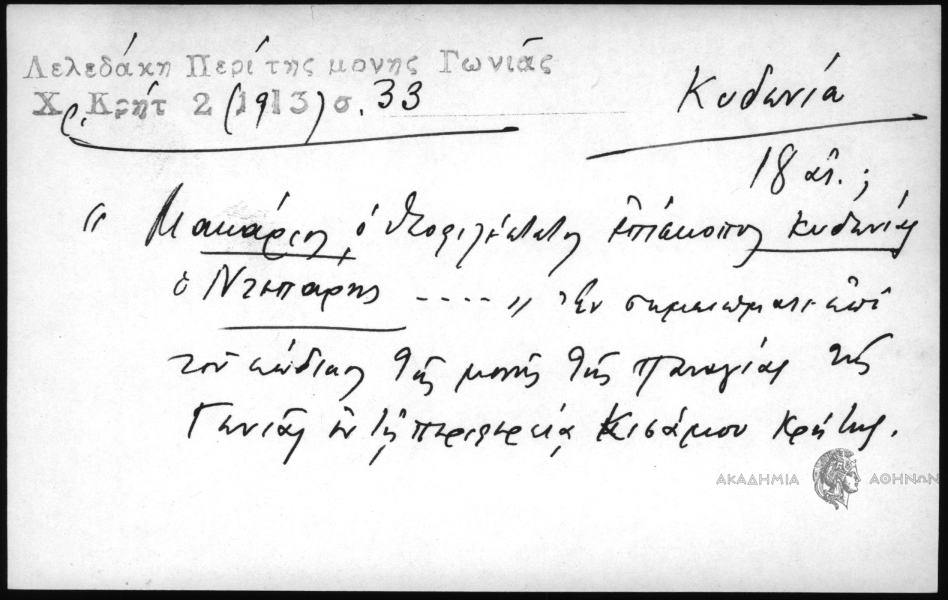 Λελεδάκη Περί της μονης Γωνιάς
Χρ. Κρήτ 2 (1913) σ. 33
Κυδωνία
18 αἰ. ;
" Μακάριος ὁ θεοφιλέστατος ἐπίσκοπος Κυδωνίας
ὁ Ντεπάρης ---- " Ἐν σημειώματι ἐπὶ
τοῦ κώδικος τῆς μονῆς τῆς Παναγίας τῆς
Γωνιᾶς ἐν τῇ περιφερείᾳ Κισάμου Κρήτης.
ΑΚΑΔΗΜΙΑ ΑΘΗΝΩΝ